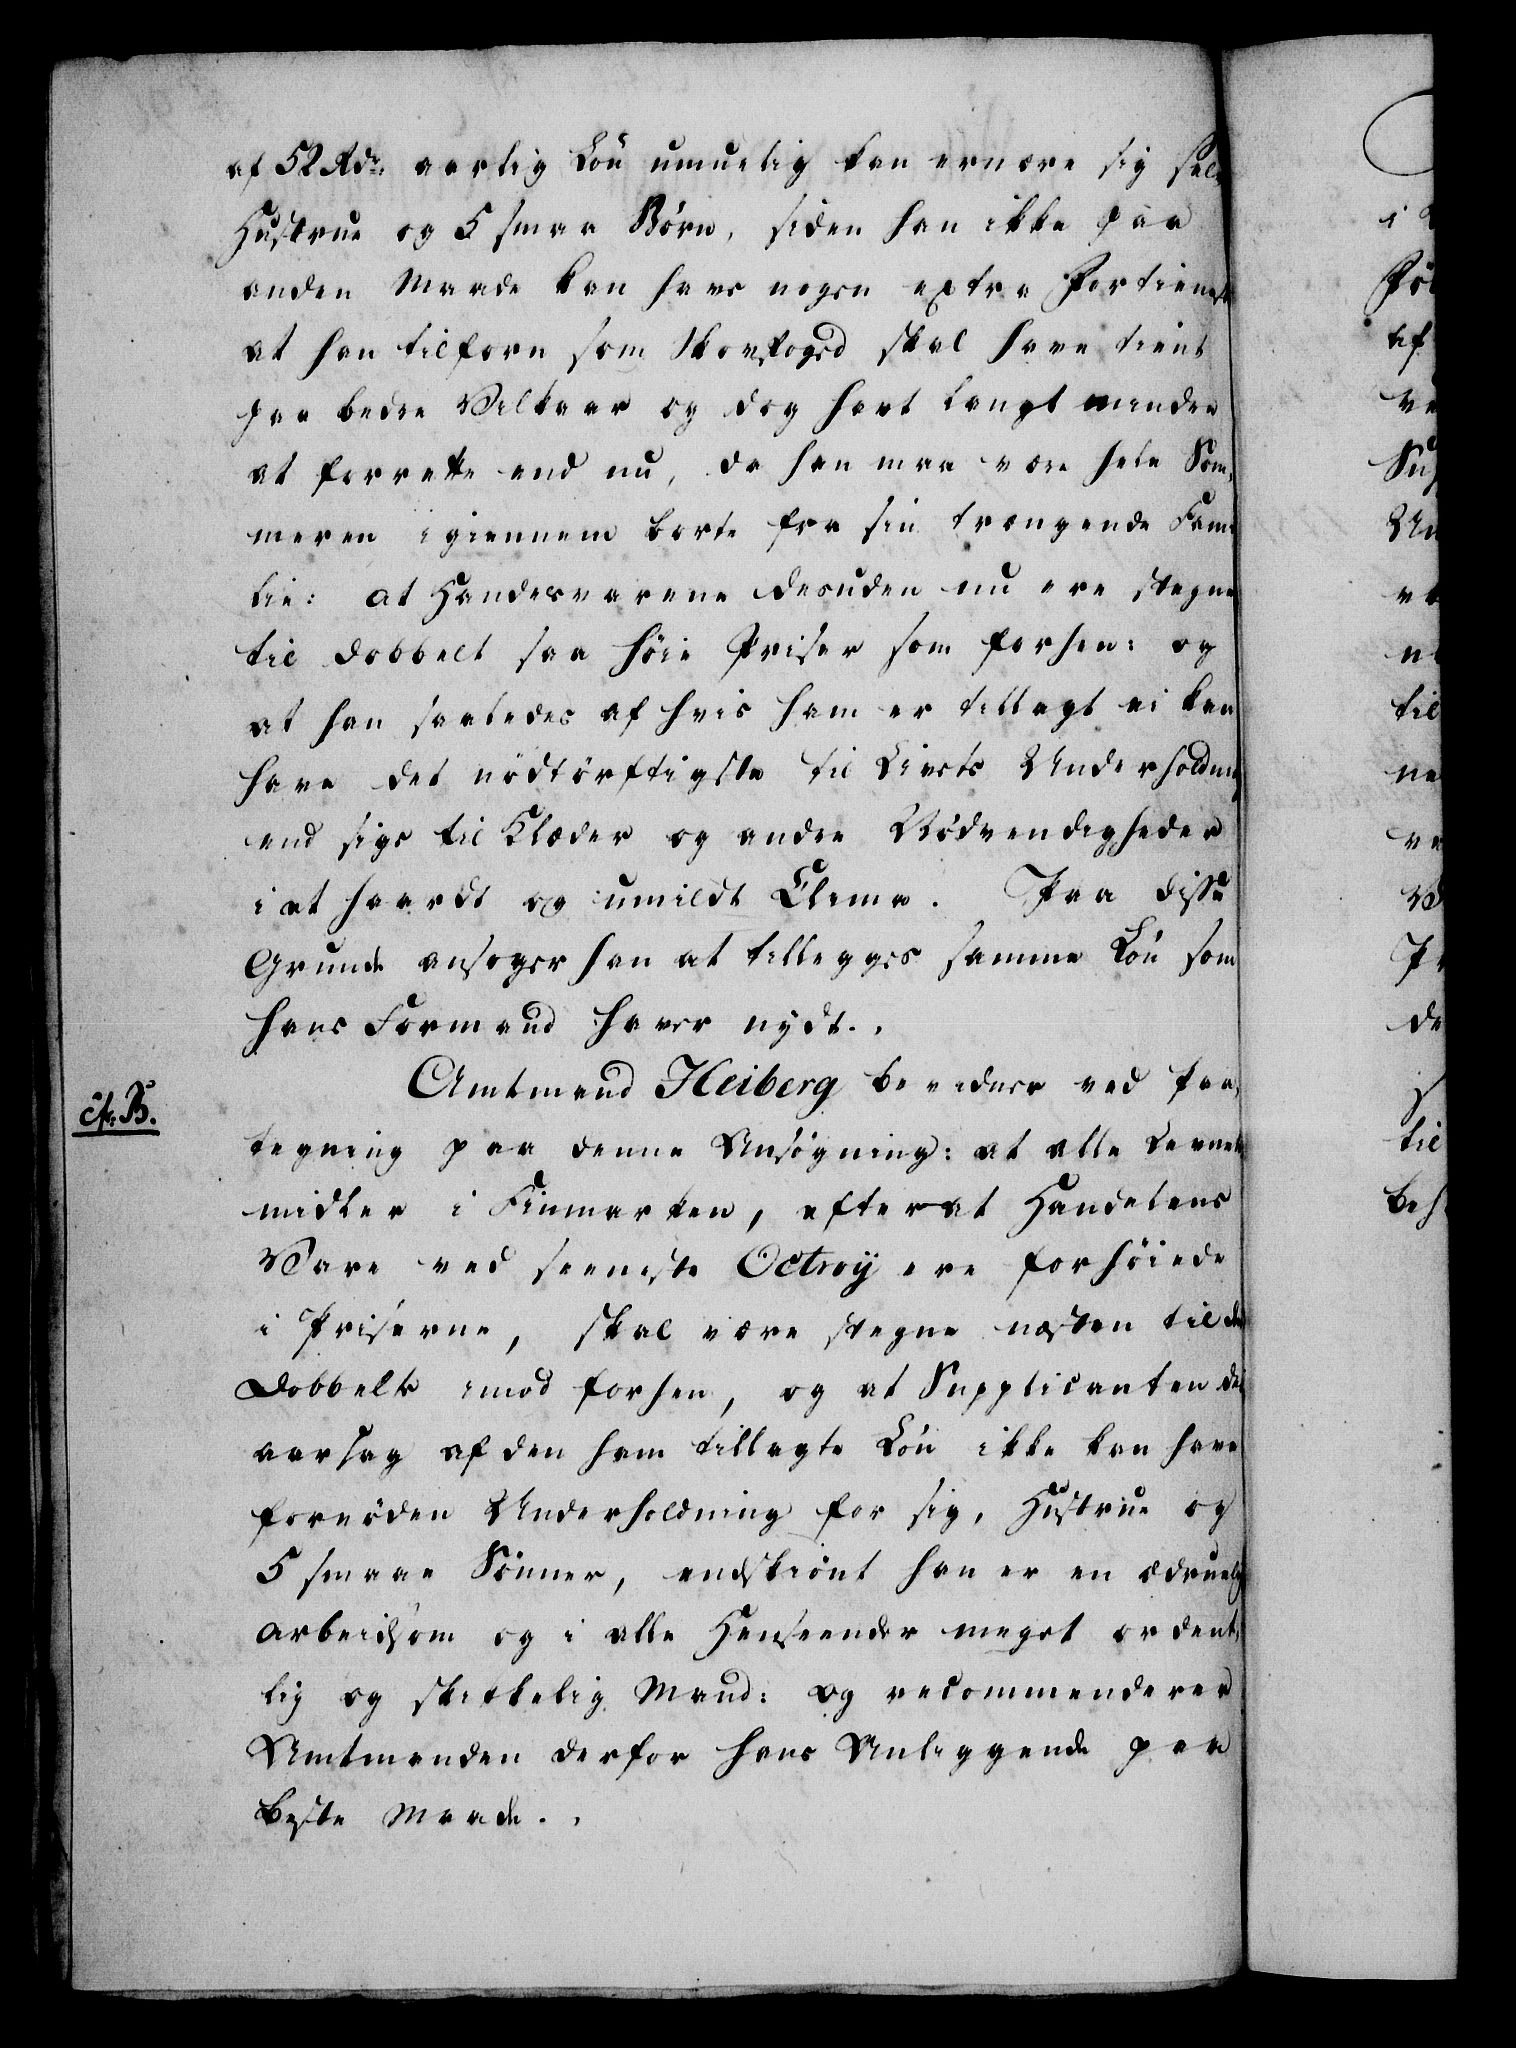 af 52 Rdr. aarlig Løn umuelig kan ernære sig selv
Hustrue og 5 smaa Børn, siden han ikke paa
anden Maade kan have nogen extra Fortieneste
at han tilforn som Skovfoged skal have tient
paa bedre Vilkaar og dog havt langt mindre
at forrette end nu, da han maa være hele Som¬
meren igiennem borte fra sin trængende Fami¬
lie: at Handelsvarene desuden nu ere stegne
til dobbelt saa høie Priser som forhen: og
at han saaledes af hvis ham er tillagt ei kan
have det nødtørftigste til Livets Underholdning
end sige til Klæder og andre Nødvendigheder
i et haardt og umildt Clima. Paa disse
Grunde ansøger han at tillegges samme Løn som
hans Formand haver nydt.
Amtmand Heiberg bevidner ved Paa¬
cfr. B.
tegning paa denne Ansøgning: at alle Levnets
midler i Finmarken, efterat Handelens
Vare ved seeneste Octroy ere forhøiede
i Priserne, skal være stegne næsten til det
Dobbelte imod forhen, og at Supplicanten des
aarsag af den ham tillagte Løn ikke kan have
fornøden Underholdning for sig, Hustrue og
5 smaae Sønner, endskiønt han er en ædruelig
arbeidsom og i alle Henseender meget ordent¬
lig og skikkelig Mand: og recommenderer
Amtmanden derfor hans Anliggende paa
beste Maade.